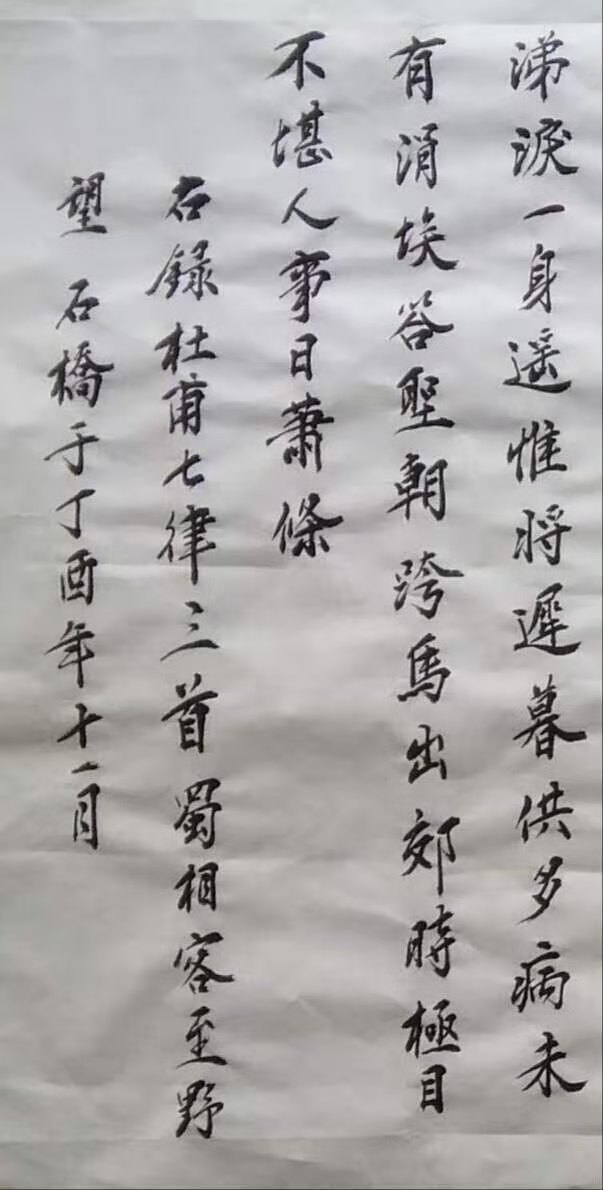 涕淚一身遥惟將遲暮供多病未
有涓埃答聖朝跨馬出郊時極目
不堪人事日蕭條
右録杜甫七律三首蜀相客至野
望 石橋于丁酉年十一月